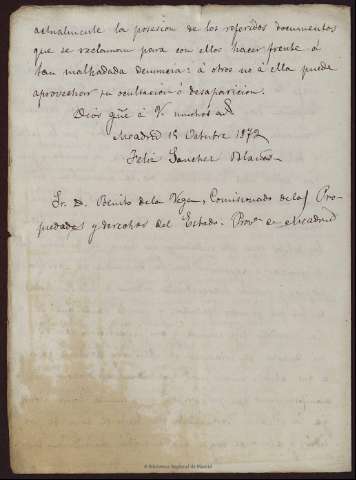 actualmente la posesion de los referidos documentos
que se reclaman para con ellos hacer frente á
tan malhadada denuncia: á otros no á ella puede
aprovechar su ocultacion ó desaparicion.
Dios gũe á V. muchos as.
Madrid 15 Octubre 1872
Felix Sanchez Blanco
Sr. D. Benito de la Vega, Comisionado de las Pro-
piedades y derechos del Estado. Prova de Madrid
© Biblioteca Regional de Madrid